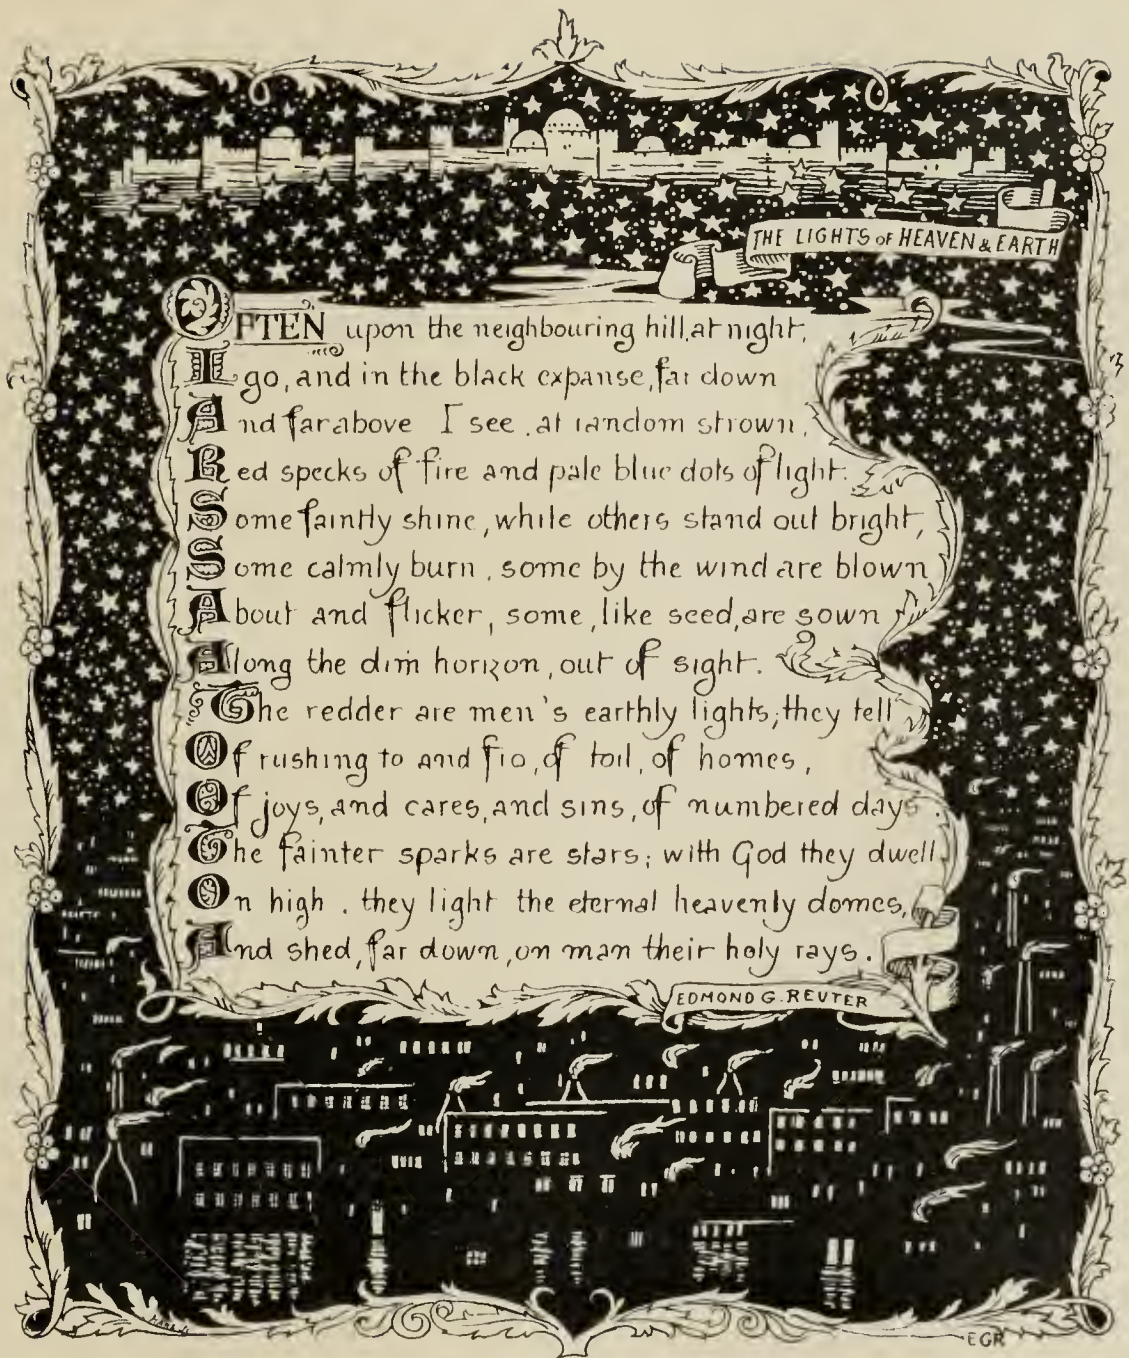 THE LIGHTS OF HEAVEN & EARTH
OFTEN upon the neighbouring hill, at night,
I go, and in the black expanse, far down
And far above I see, at random strown,
Red specks of fire and pale blue dots of light.
Some faintly shine, while others stand out bright,
Some calmly burn, some by the wind are blown
About and flicker, some, like seed, are sown
Along the dim horizon, out of sight.
The redder are men's earthly lights; they tell
Of rushing to and fro, of toil, of homes,
Of joys, and cares, and sins, of numbered days.
The fainter sparks are stars; with God they dwell
On high, they light the eternal heavenly domes,
And shed, far down, on man their holy rays.
EDMOND G. REUTER
EGR